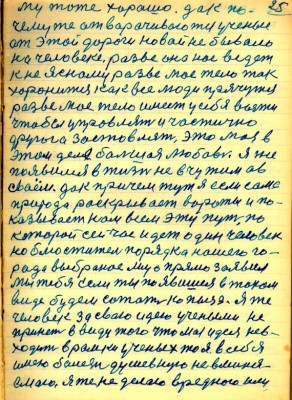 му тоте хорошо. дак по- 25
чему те отварачиваютси ученые
от этой дороги новай не бывало
на человеке, разве она нас ведет
к не ясному разве мое тело так
хоронитси как все люди прячутси
разве мое тело имеет у себя
чтобы управлят и частично
друга заставлят, это моя в
этом деле балшая любов. Я не
появился в жизни не в чужим а в
своем. дак причем тут я если сама
природа раскрывает вароты и по-
казывает нам всем этот пут по
которой сейчас идет один человек
ко блюстител порядка нашего го-
рода выбраное му прямо заявил
мы тебя если ты появишся в таком
виде будем сотат Я те
человек здеваю идею ученыи не
принет в виду того что моя идея нев-
ходит в рамки ученых то я в себя
имею болет душевную не
Я те не делаю вредного или